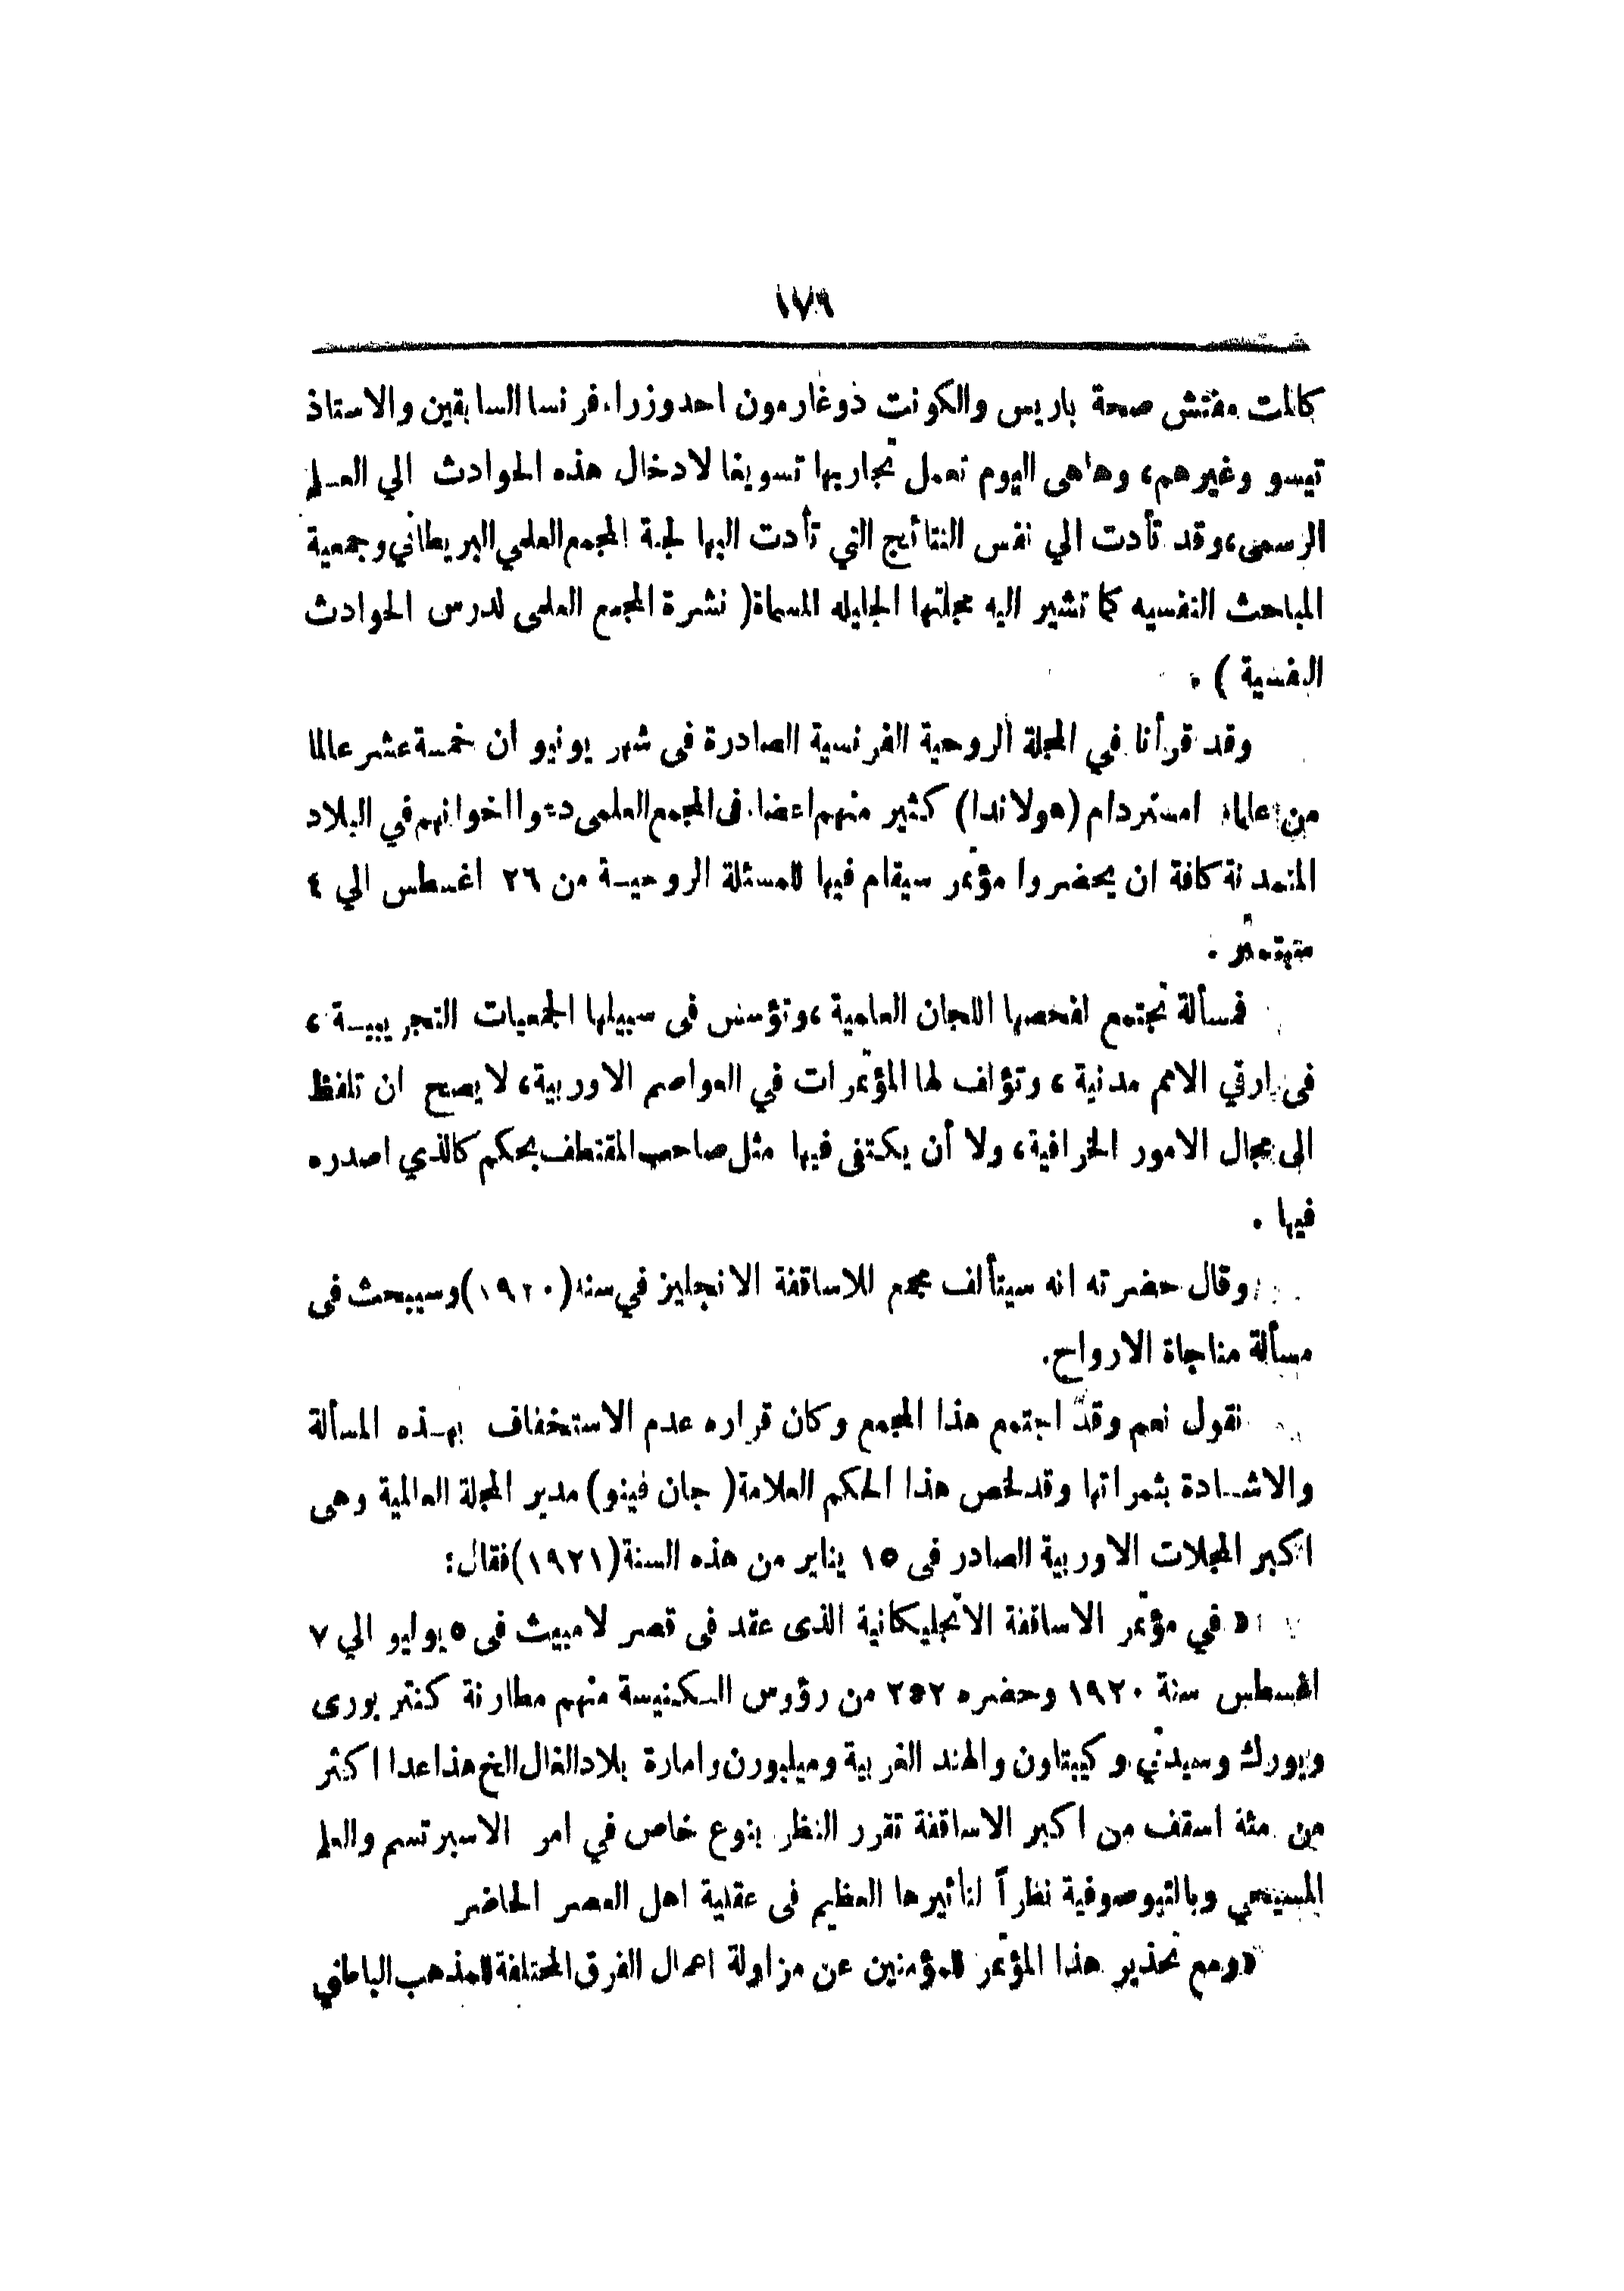 ١٧٩
كالمت مفتش صحة باريس والكونت دوغارمون احد وزراء فرنسا السابقين والاستاذ
تيسو وغيرهم، وهاهى اليوم تعمل تجاربها تسويغا لادخال هذه الحوادث الي العلم
الرسمى، وقد تأدت الي نفس النتائج التي تأدت اليها لجنة المجمع العلمي البريطاني وجمعية
المباحث النفسيه كما تشير اليه مجلتها الجليله المسماة ( نشرة المجمع العلمى لدرس الحوادث
النفسية ) .
وقد قرأنا في المجلة الروحية الفرنسية الصادرة فى شهر يونيو ان خمسة عشر عالما
من علماء امستردام (هولاندا) كثير منهم اعضاء فى المجمع العلمى دعوا اخوانهم في البلاد
المتمدنة كافة ان يحضروا مؤتمر سيقام فيها للمسئلة الروحية من ٢٦ اغسطس الي ٤
سبتمبر .
فمسألة تجتمع لفحصها اللجان العلمية ، وتؤسس فى سبيلها الجمعيات التجريبية ،
فى ارقي الامم مدنية ، وتؤلف لها المؤتمرات في العواصم الاوربية، لا يصح ان تلفظ
الى مجال الامور الخرافية، ولا أن يكتفى فيها مثل صاحب المقتطف بحكم كالذي اصدره
فيها .
وقال حضرته انه سيتألف مجمع للاساقفة الانجليز في سنة (١٩٢٠) وسيبحث فى
مسألة مناجاة الارواح.
نقول نعم وقد اجتمع هذا المجمع وكان قراره عدم الاستخفاف بهذه المسألة
والاشادة بثمراتها وقد لخص هذا الحكم العلامة ( جان فينو) مدير المجلة العالمية وهى
اكبر المجلات الاوربية الصادر فى ١٥ يناير من هذه السنة (١٩٢١) فقال:
« في مؤتمر الاساقفة الانجليكانية الذى عقد فى قصر لامبيث فى ٥ يوليو الي ٧
اغسطس سنة ١٩٢٠ وحضره ٢٥٢ من رؤوس الكنيسة منهم مطارنة كنتر بورى
ويورك وسيدني وكيبتاون والهند الغربية وميلبورن وامارة بلاد الغال الخ هذا عدا اكثر
من مئة اسقف من اكبر الاساقفة تقرر النظر بنوع خاص في امر الاسبرتسم والعلم
المسيحي وبالتيوصوفية نظراً لتأثيرها العظيم فى عقلية اهل العصر الحاضر
«ومع تحذير هذا المؤتمر للمؤمنين عن مزاولة اعمال الفرق المختلفة للمذهب الباطني